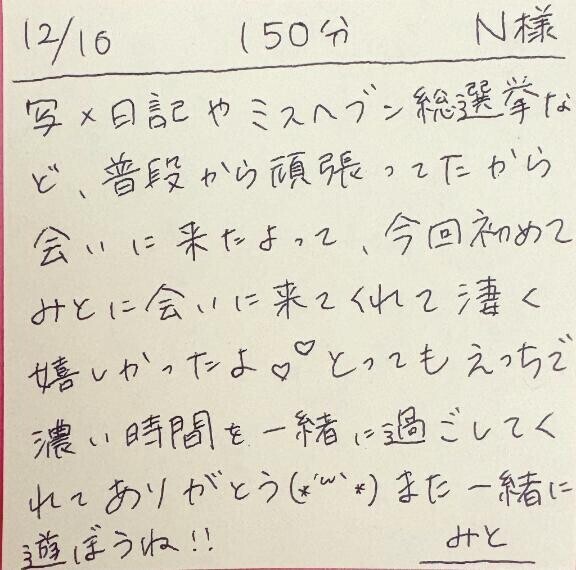 12/16 150分 N様
写メ日記やミスヘブン総選挙な
ど、普段から頑張ってたから
会いに来たよって、今回初めて
みとに会いに来てくれて凄く
嬉しかったよ♡♡とってもえっちで
濃い時間を一緒に過ごしてく
れてありがとう(*´ω`*)また一緒に
遊ぼうね!!
みと